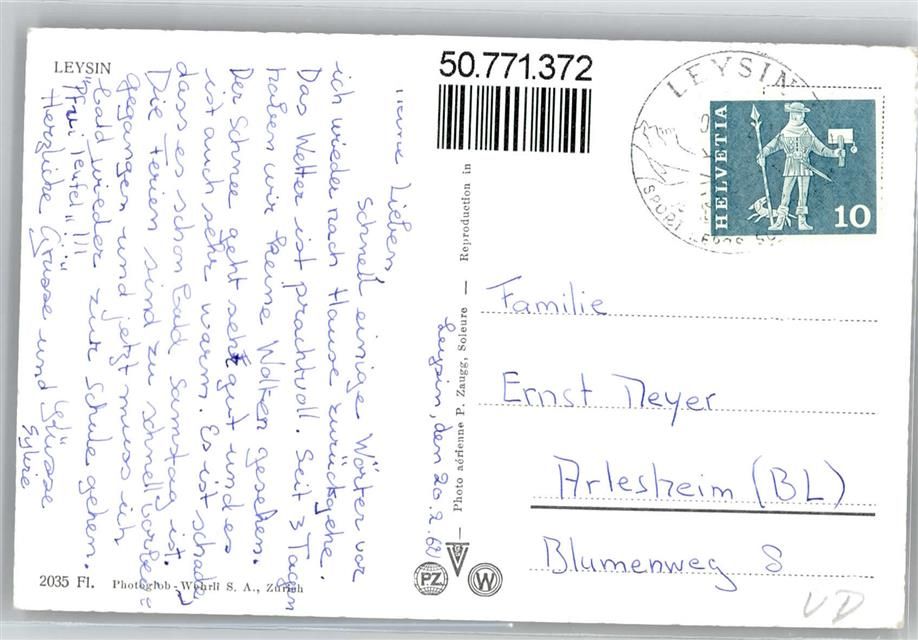 LEYSIN
50.771.372
Leysin, den 20.2.62
Meine Lieben,
Schnell einige Wörter vor
ich wieder nach Hause zurückgehe.
Das Wetter ist prachtvoll. Seit 3 Tagen
haben wir keine Wolken gesehen.
Der Schnee geht sehr gut und es
ist auch sehr warm. Es ist schade
dass es schon bald Samstag ist.
Die Ferien sind zu schnell vorbei-
gegangen und jetzt muss ich
bald wieder zur Schule gehen.
"Pfui Teufel"!!!
Herzliche Grüsse und Küsse
Sylvie
Photo aérienne P. Zaugg, Soleure — Reproduction in
LEYSIN
SPORT
HELVETIA
10
Familie
Ernst Meyer
Arlesheim (BL)
Blumenweg 8
2035 Fl. Photoglob-Wehrli S. A., Zürich
PZ
W
VD